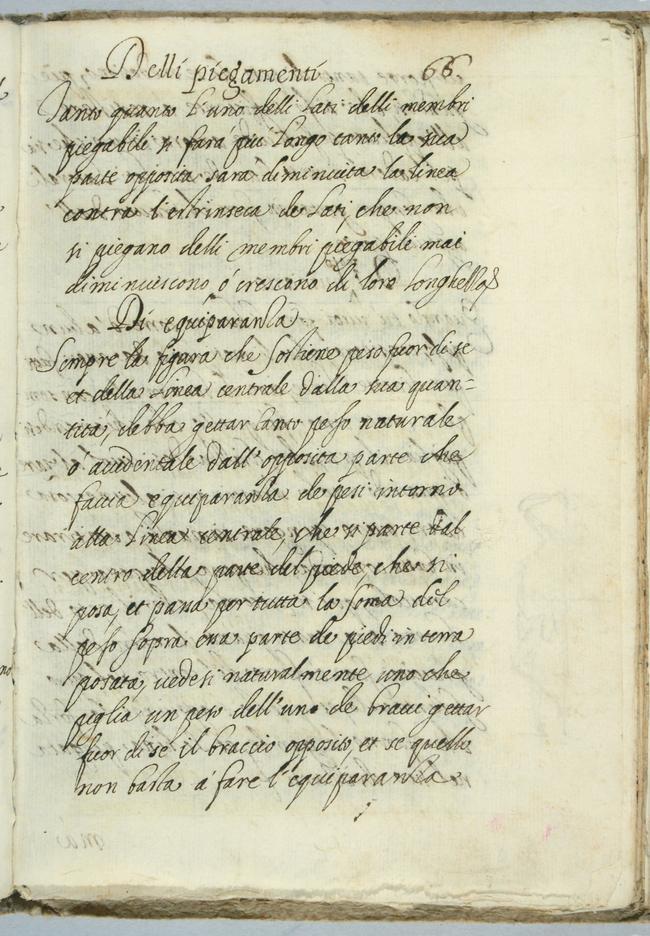 Delli piegamenti 66
Tanto quanto l'uno delli lati delli membri
piegabili si farà più longo tanto la sua
parte opposita sarà diminuita la linea
contra l'estrinseca de lati, che non
si piegano delli membri piegabili mai
diminuiscono ò crescono di loro longhezza
Di equiparanza
Sempre la figura che sostiene peso fuor di se
et della linea centrale dalla sua quan=
tità, debba gettar tanto peso naturale
ò accidentale dall'opposita parte che
faccia equiparanza de pesi intorno
alla linea centrale, che si parte dal
centro della parte del piede, che si
posa, et passa per tutta la soma del
peso sopra essa parte de piedi in terra
posata, vedesi naturalmente uno che
piglia un peso dell'uno de bracci gettar
fuor di se il braccio opposito et se quello
non basta à fare l'equiparanza